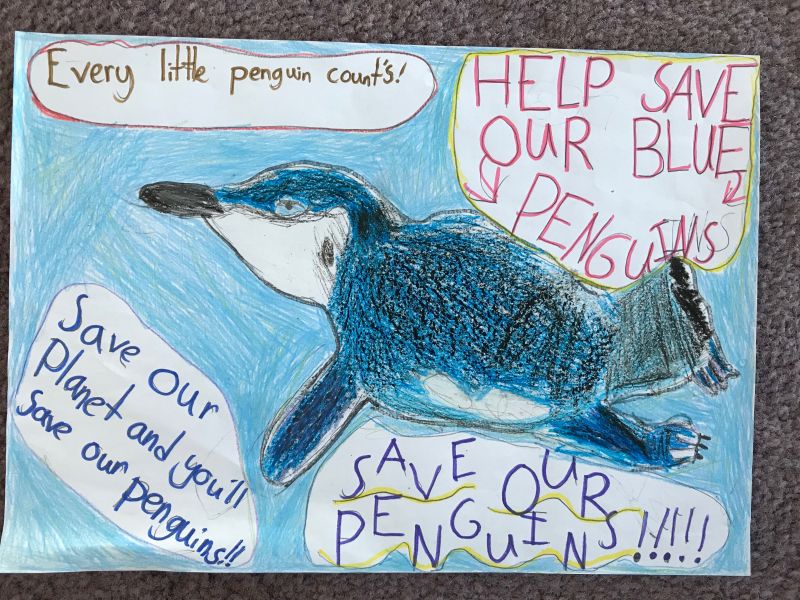 Every little penguin count's!
HELP SAVE
OUR BLUE
PENGUINS
Save our
Planet and you'll
Save our penguins!!
SAVE OUR
PENGUINS!!!!!